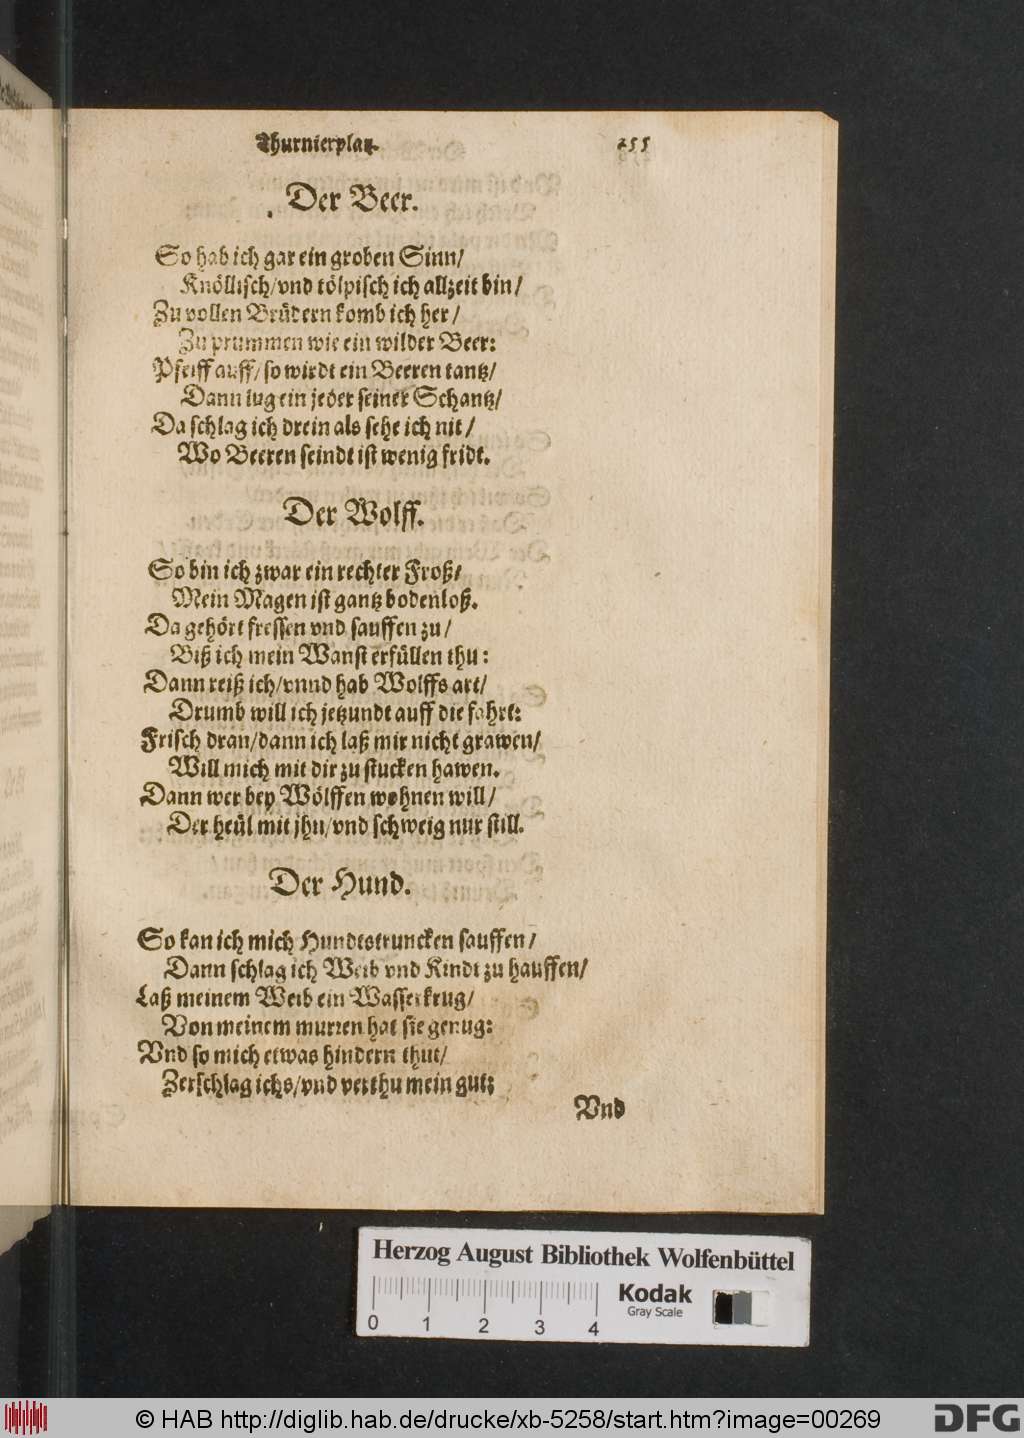 Thurnierplatz. 255
Der Beer.
So hab ich gar ein groben Sinn/
Knöllisch/vnd tölpisch ich allzeit bin/
Zu vollen Brüdern komb ich her/
Zu prummen wie ein wilder Beer:
Pfeiff auff/so wirdt ein Beeren tantz/
Dann lug ein jeder seiner Schantz/
Da schlag ich drein als sehe ich nit/
Wo Beeren seindt ist wenig fridt.
Der Wolff.
So bin ich zwar ein rechter Froß/
Mein Magen ist gantz bodenloß.
Da gehört fressen vnd sauffen zu/
Biß ich mein Wanst erfüllen thu:
Dann reiß ich/vnnd hab Wolffs art/
Drumb will ich jetzundt auff die fahrt:
Frisch dran/dann ich laß mir nicht grawen/
Will mich mit dir zu stucken hawen.
Dann wer bey Wölffen wohnen will/
Der heül mit jhn/vnd schweig nur still.
Der Hund.
So kan ich mich Hundtstruncken sauffen/
Dann schlag ich Weib vnd Kindt zu hauffen/
Laß meinem Weib ein Wasserkrug/
Von meinem murren hat sie genug:
Vnd so mich etwas hindern thut/
Zerschlag ichs/vnd verthu mein gut:
Vnd
Herzog August Bibliothek Wolfenbüttel
Kodak
Gray Scale
0 1 2 3 4
© HAB http://diglib.hab.de/drucke/xb-5258/start.htm?image=00269
DFG